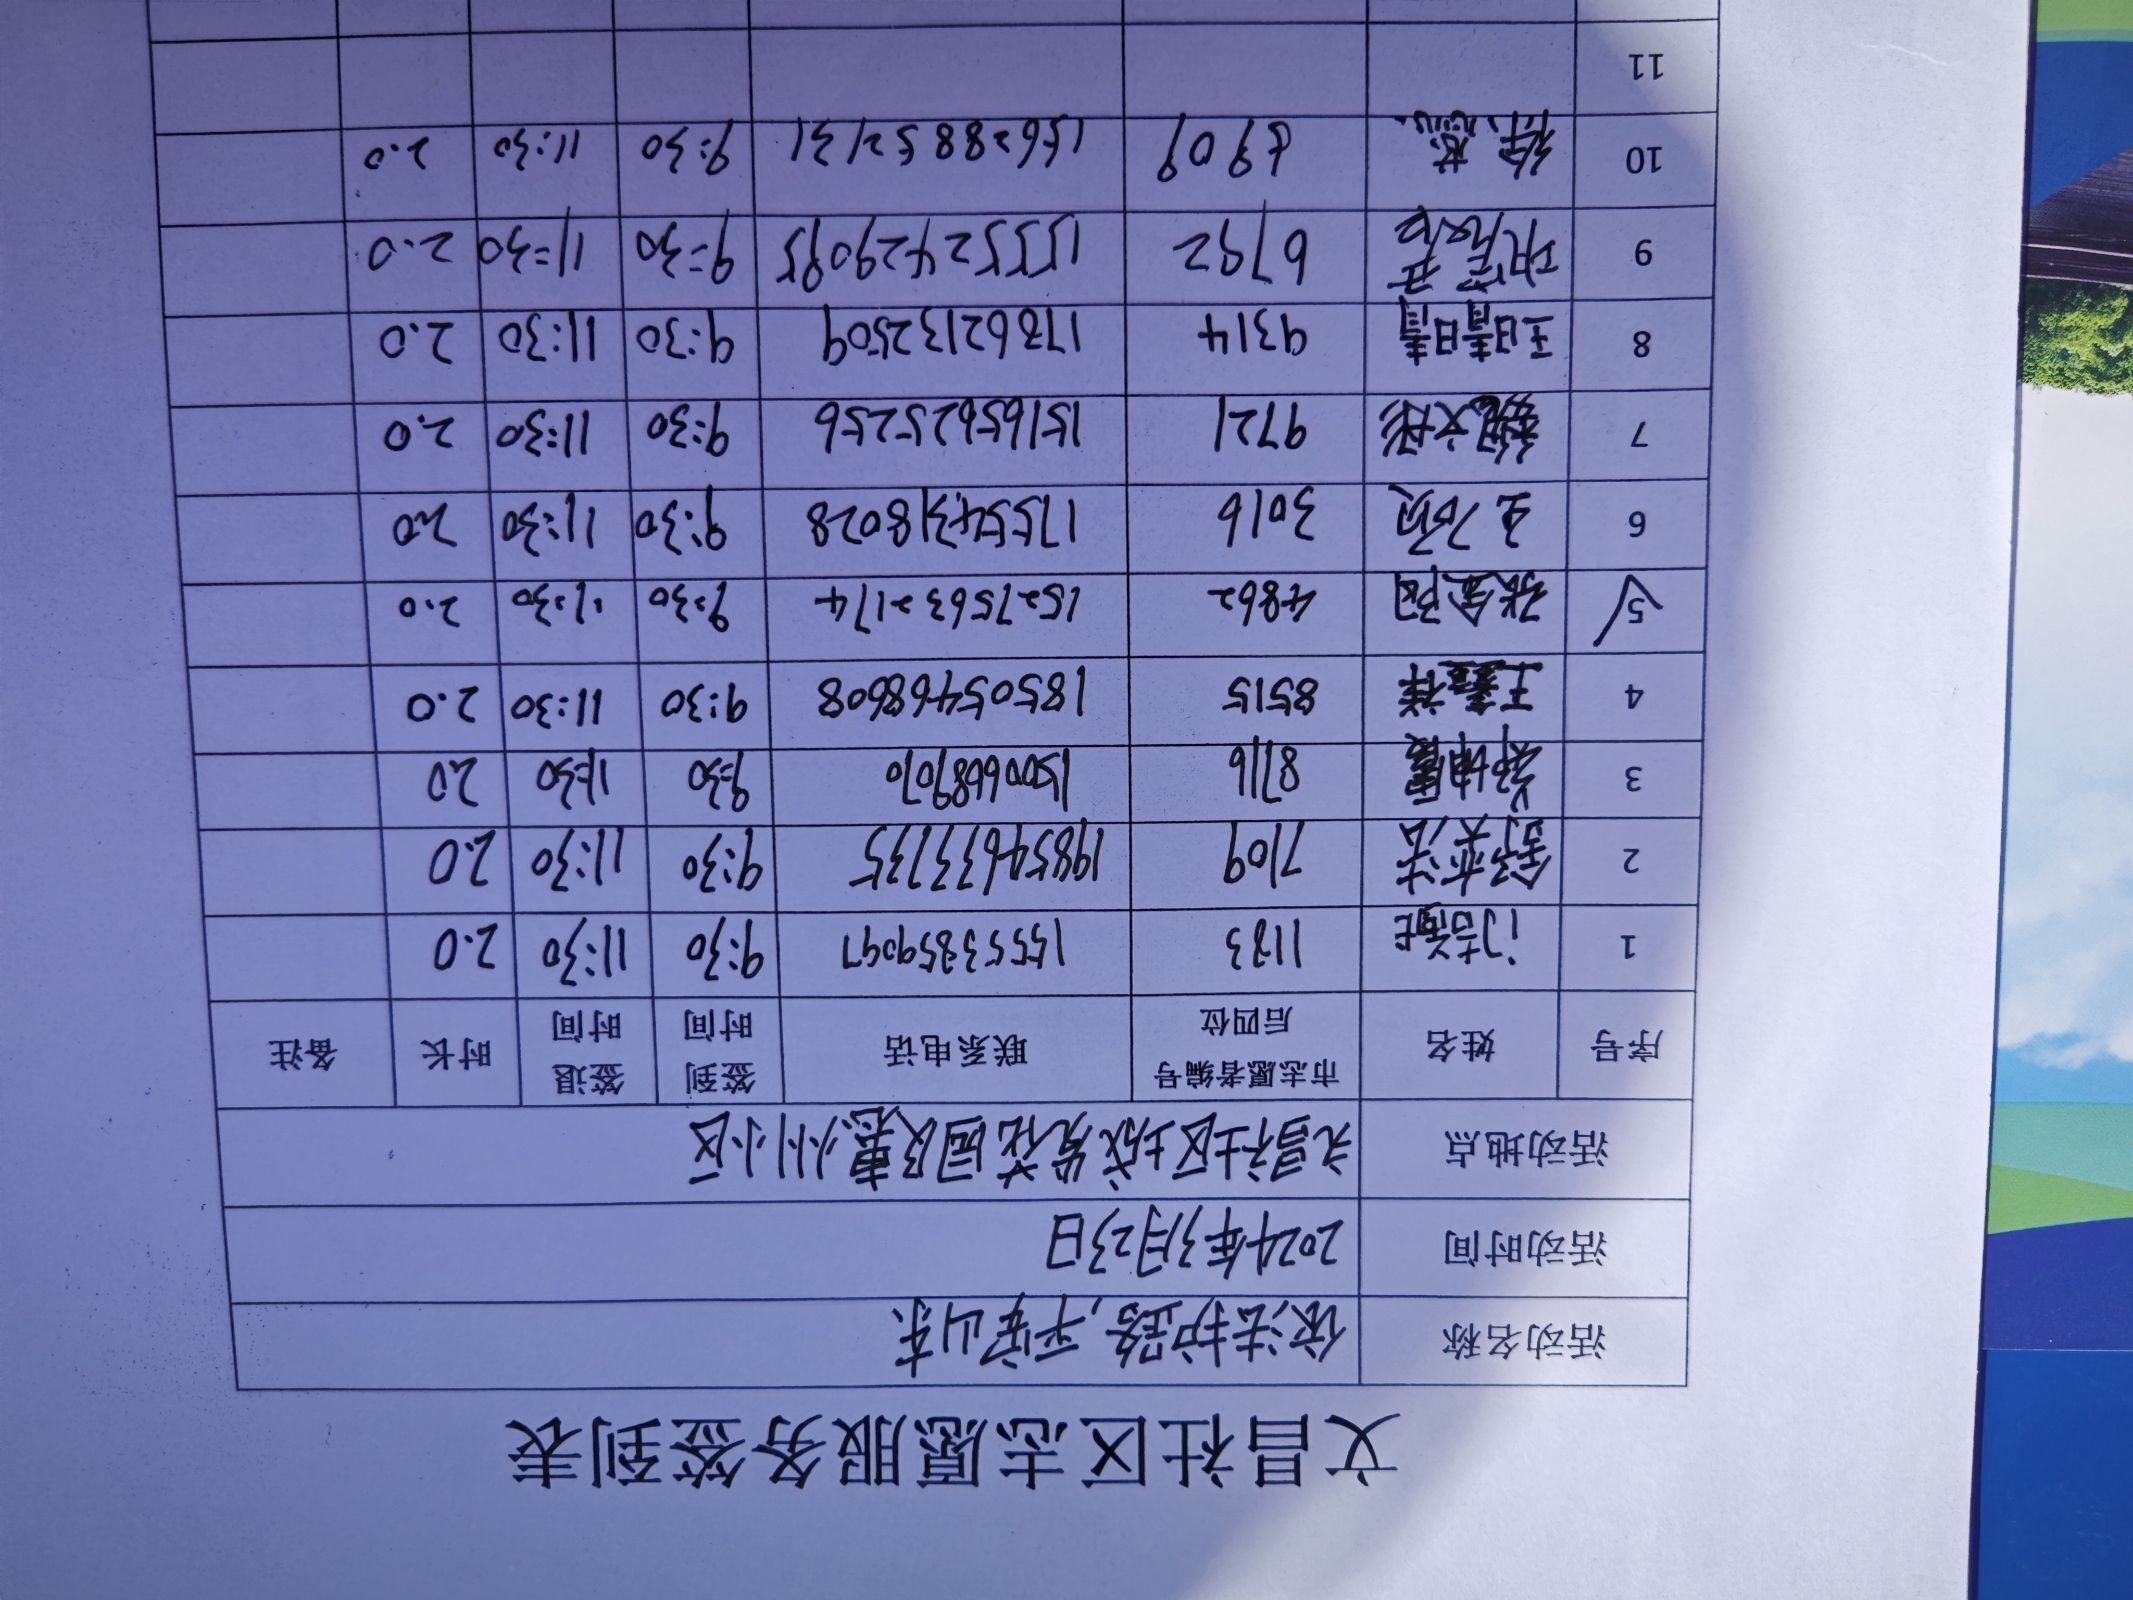 文昌社区志愿服务签到表
活动名称 依法护路,平安山东
活动时间 2024年3月23日
活动地点 文昌社区城发花园及惠州小区
序号 姓名 市志愿者编号后四位 联系电话 签到时间 签退时间 时长 备注
1 1183 15553859097 9:30 11:30 2.0
2 7109 19854633735 9:30 11:30 2.0
3 郑坤霞 8716 15006689070 9:30 11:30 2.0
4 王鑫祥 8515 18505468608 9:30 11:30 2.0
5 张金阳 4862 15275632174 9:30 11:30 2.0
6 3016 17554318028 9:30 11:30 2.0
7 魏文彤 9721 15165625256 9:30 11:30 2.0
8 王晴晴 9314 17862132509 9:30 11:30 2.0
9 6792 15552429095 9:30 11:30 2.0
10 徐慈 6909 15628852131 9:30 11:30 2.0
11